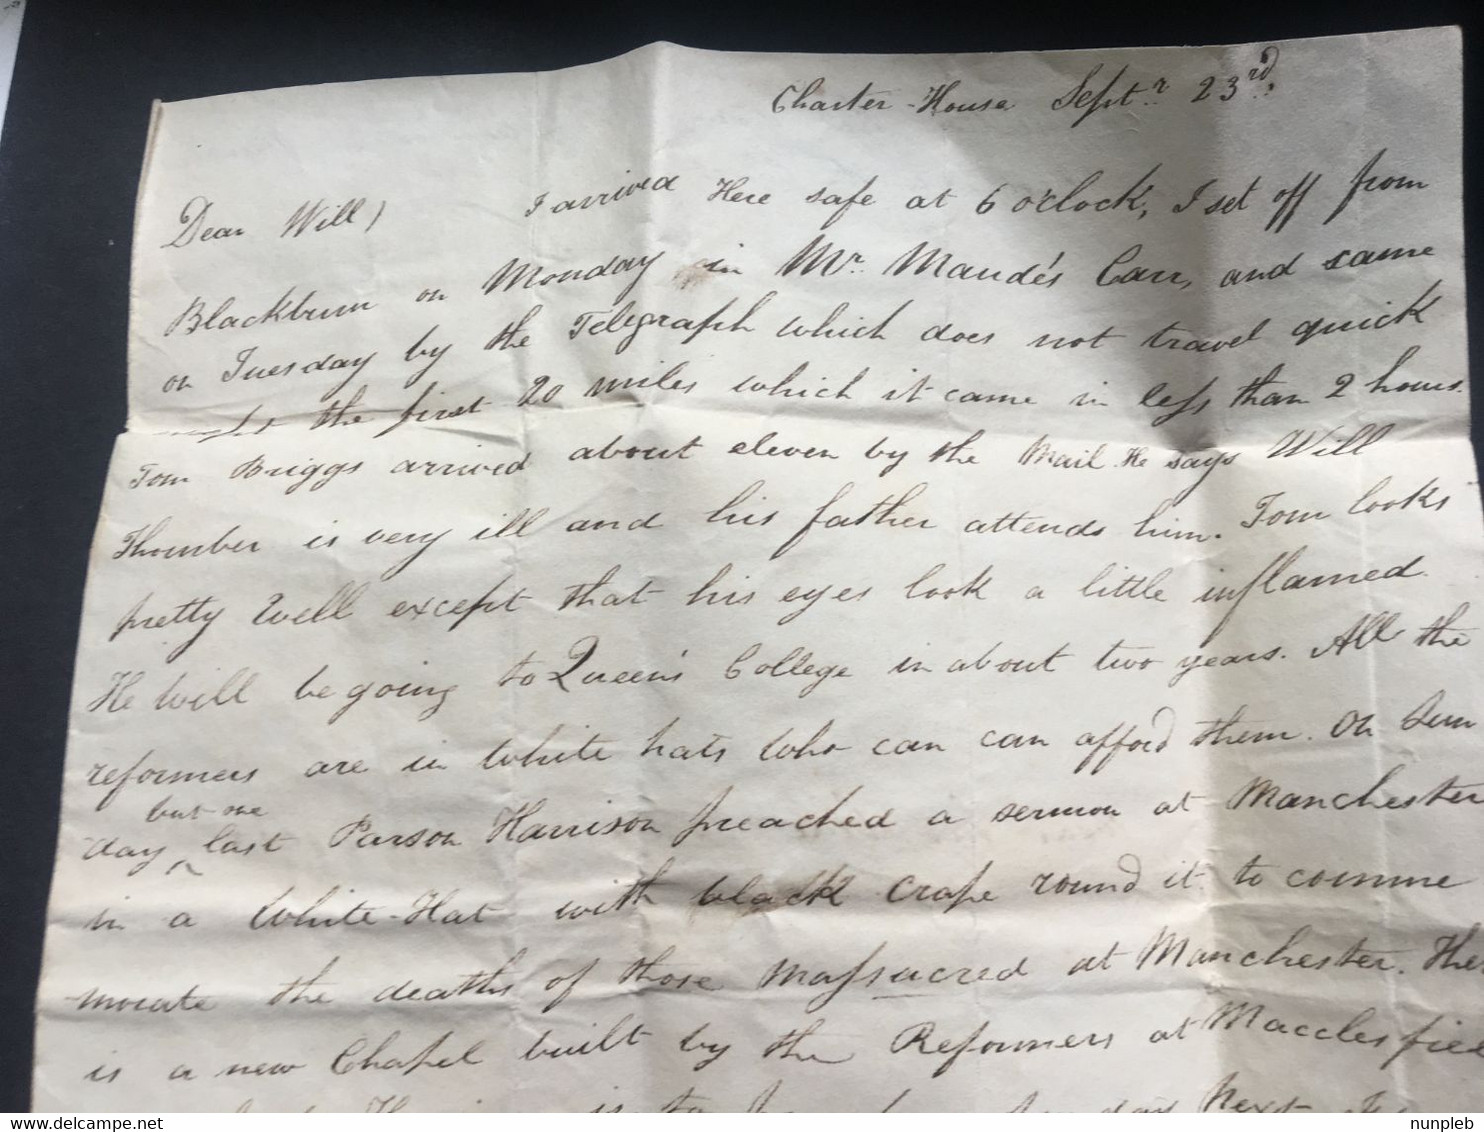 Charter-House Septr. 23rd.
Dear Will, I arrived Here safe at 6 o'clock, I set off from
Blackburn on Monday in Mr. Maude's Carr, and came
on Tuesday by the Telegraph which does not travel quick
the first 20 miles which it came in less than 2 hours.
Tom Briggs arrived about eleven by the Mail. He says Will
Thornber is very ill and his father attends him. Tom looks
pretty well except that his eyes look a little inflamed.
He will be going to Queen's College in about two years. All the
reformers are in white hats who can can afford them. On Sun
day but one last Parson Harrison preached a sermon at Manchester
in a White-Hat with black crape round it to comme
morate the deaths of those massacred at Manchester. The
is a new Chapel built by the Reformers at Macclesfie
is to day Next
delcampe.net
nunpleb